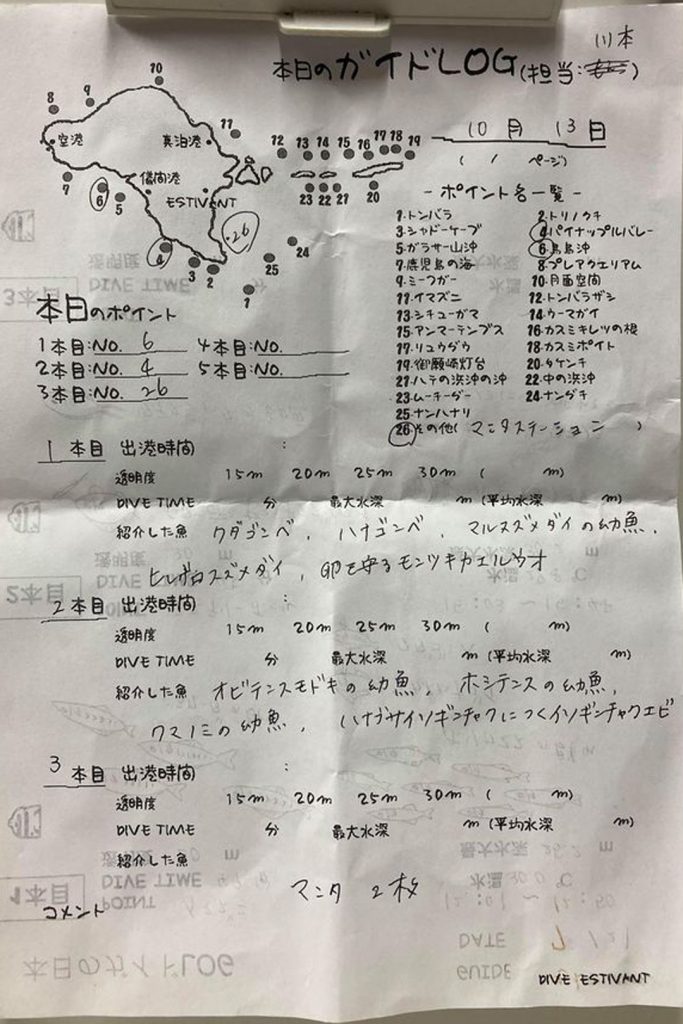 川本
本日のガイドLOG(担当: )
10月 13日
( / ページ)
10
9
8
空港
真泊港
11
12 13 14 15 16 17 18 19
7
6
儀間港
5
ESTIVANT
23 22 21
20
26
4
3
2
24
25
1
-ポイント名一覧-
1.トンバラ 2.トリノクチ
3.シャドーケーブ 4.パイナップルバレー
5.ガラサー山沖 6.鳥島沖
7.鹿児島の海 8.プレアクエリアム
9.ミーフガー 10.月面空間
11.イマズニ 12.トンバラガシ
13.シチューガマ 14.ウーマガイ
15.アンマーテンプス 16.カスミキレツの根
17.リュウダウ 18.カスミポイト
19.御願崎灯台 20.タケンチ
21.ハテの浜沖の沖 22.中の浜沖
23.ムーチーダー 24.ナンダチ
25.ナンハナリ
26.その他( マンタステーション )
本日のポイント
1本目:NO. 6 4本目:NO.
2本目:NO. 4 5本目:NO.
3本目:NO. 26
1本目 出港時間 :
透明度 15m 20m 25m 30m ( m)
DIVE TIME 分 最大水深 m (平均水深 m)
紹介した魚 クダゴンベ, ハナゴンベ, マルスズメダイの幼魚,
ヒレボロスズメダイ, 卵を守るモンツキカエルウオ
2本目 出港時間 :
透明度 15m 20m 25m 30m ( m)
DIVE TIME 分 最大水深 m (平均水深 m)
紹介した魚 オビテンスモドキの幼魚, ホシテンスの幼魚,
クマノミの幼魚, ハナブサイソギンチャクにつくイソギンチャクエビ
3本目 出港時間 :
透明度 15m 20m 25m 30m ( m)
DIVE TIME 分 最大水深 m (平均水深 m)
紹介した魚
マンタ 2枚
コメント
DIVE ESTIVANT